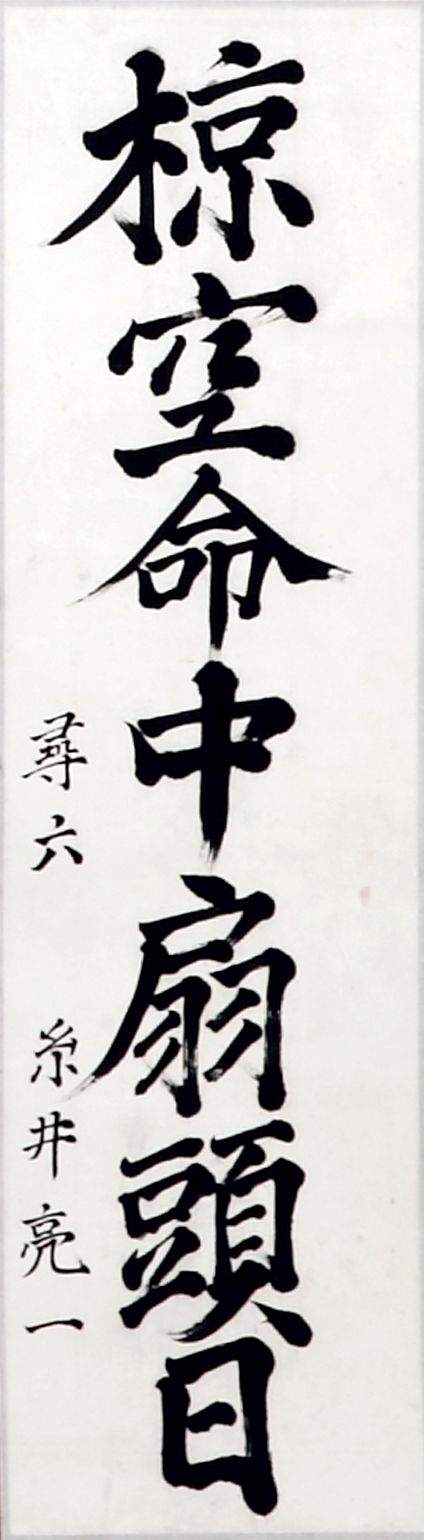 椋空命中扇頭日
尋六 糸井亮一